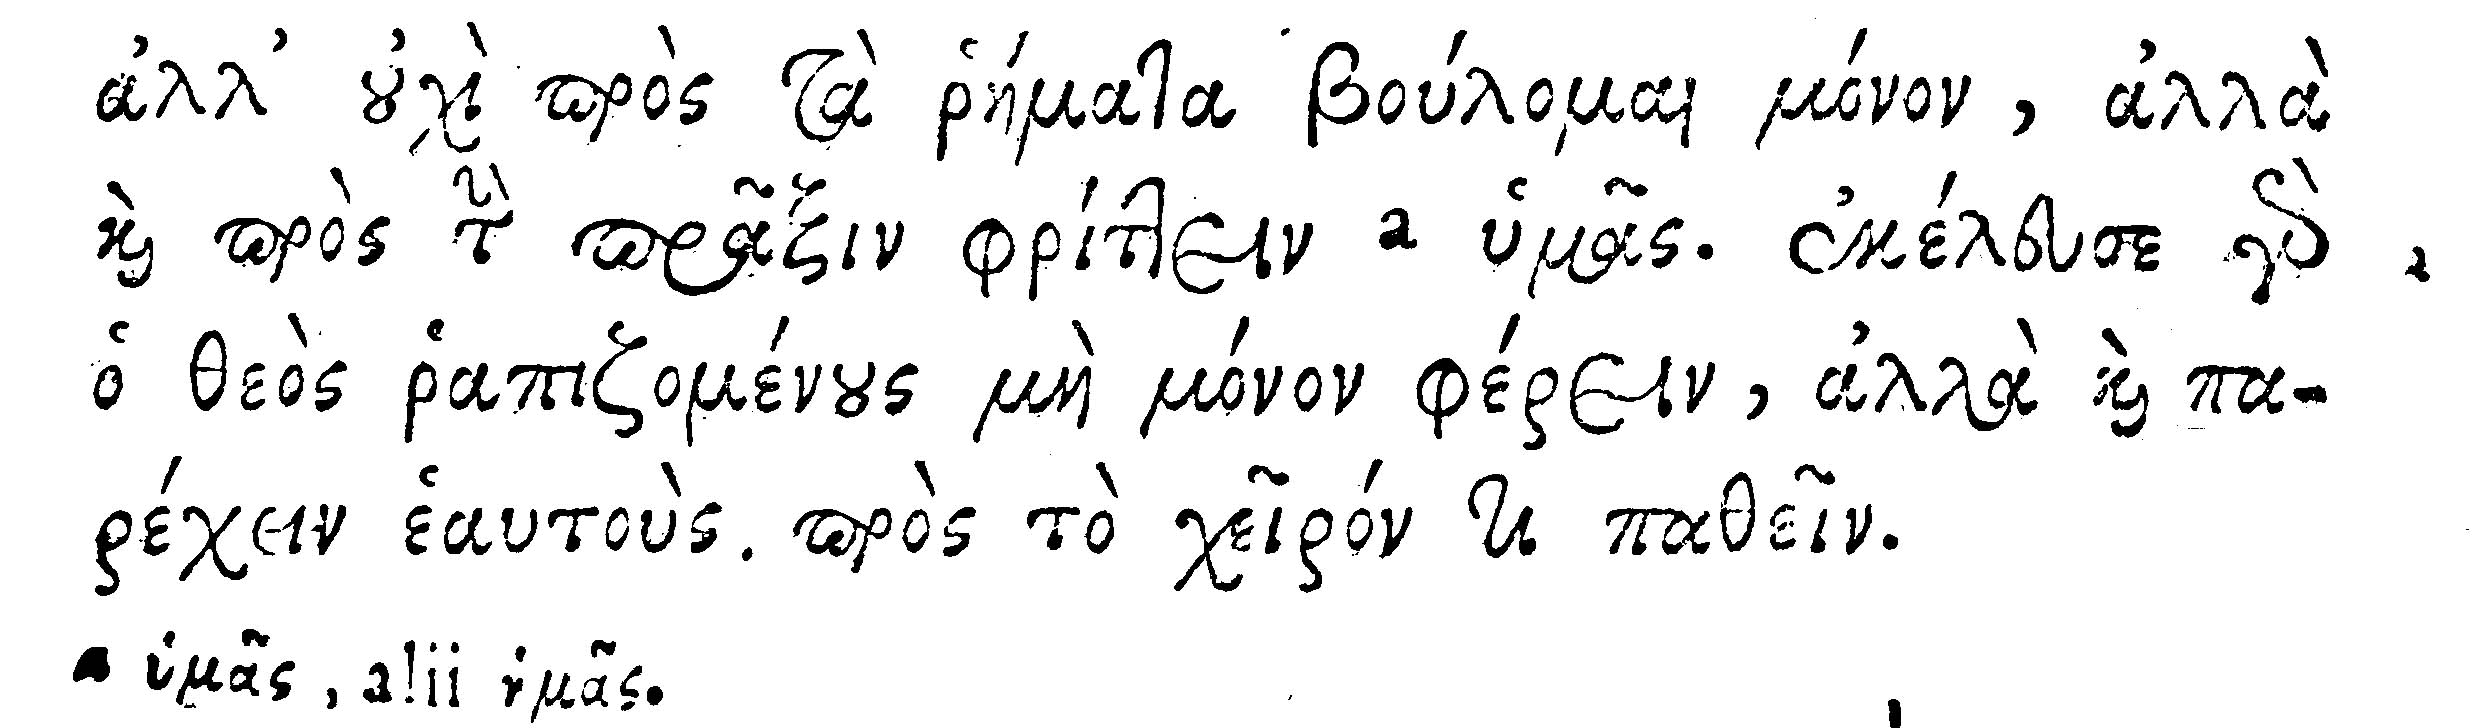 ἀλλ' οὐχὶ πρὸς τὰ ῥήματα βούλομαι μόνον, ἀλλὰ
καὶ πρὸς τὴν πρᾶξιν φρίττειν a ὑμᾶς. ἐκέλευσε γὰρ
ὁ θεὸς ῥαπιζομένους μὴ μόνον φέρειν, ἀλλὰ καὶ πα-
ρέχειν ἑαυτοὺς. πρὸς τὸ χεῖρόν τι παθεῖν.
a ὑμᾶς, alii ἡμᾶς.